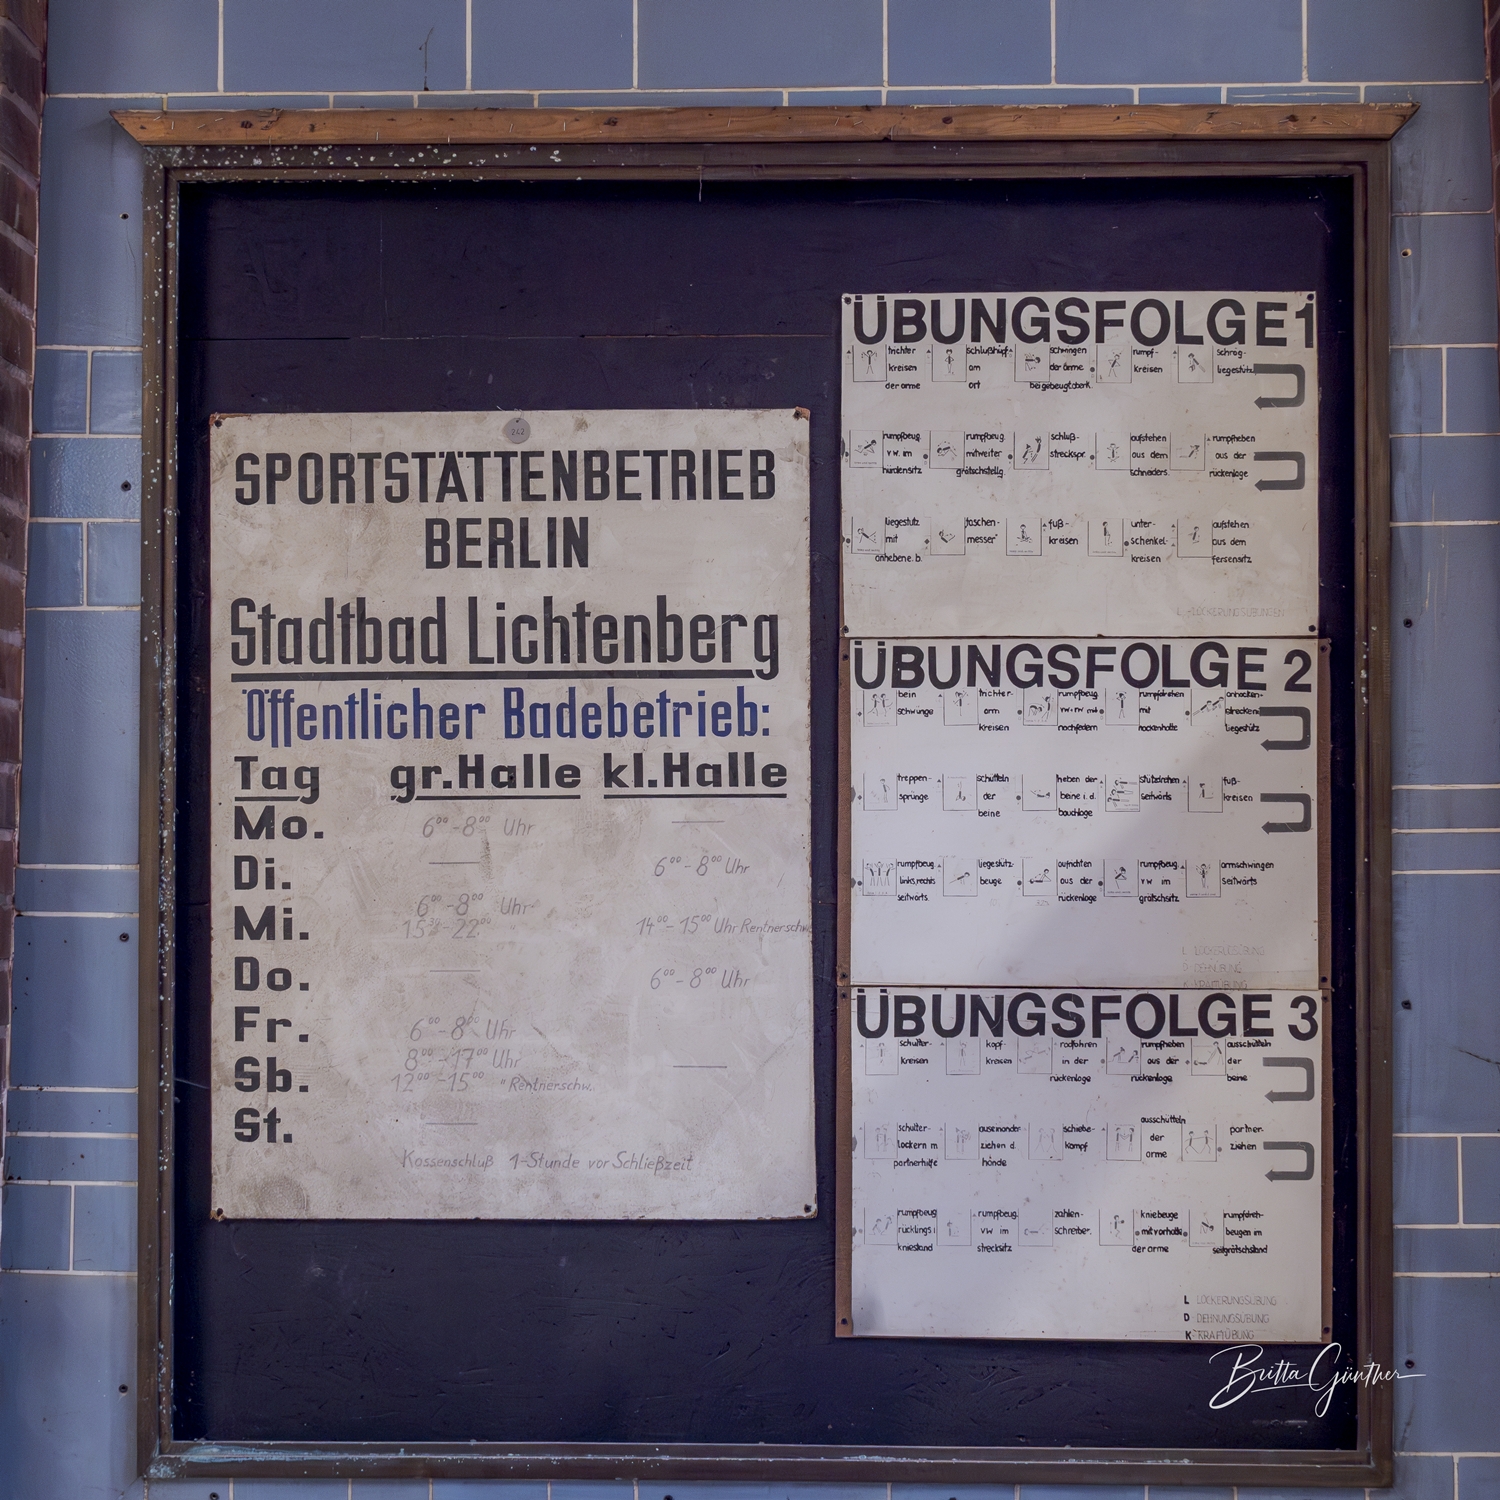 242
SPORTSTÄTTENBETRIEB
BERLIN
Stadtbad Lichtenberg
Öffentlicher Badebetrieb:
Tag gr.Halle kl.Halle
Mo. 6⁰⁰-8⁰⁰ Uhr —
Di. — 6⁰⁰-8⁰⁰ Uhr
6⁰⁰-8⁰⁰ Uhr
Mi. 15³⁰-22⁰⁰ 14⁰⁰-15⁰⁰ Uhr Rentnerschw.
Do. — 6⁰⁰-8⁰⁰ Uhr
Fr. 6⁰⁰-8⁰⁰ Uhr
8⁰⁰-17⁰⁰ Uhr
Sb. 12⁰⁰-15⁰⁰ "Rentnerschw. —
St. —
Kassenschluß 1-Stunde vor Schließzeit
ÜBUNGSFOLGE1
trichter schlußhüpf. schwingen rumpf- schräg-
kreisen am der arme kreisen liegestütz
der arme ort bei gebeugt.oberk.
rumpfbeug. rumpfbeug. schluß- aufstehen rumpfheben
vw. im mit weiter streckspr. aus dem aus der
hürdensitz grätschstellg. schneiders. rückenlage
liegestütz taschen- fuß- unter- aufstehen
mit messer" kreisen schenkel- aus dem
anhebene. b. kreisen fersensitz
L -LOCKERUNGSÜBUNGEN
ÜBUNGSFOLGE 2
bein trichter- rumpfbeug. rumpfdrehen anhocken-
schwünge arm mit strecken
kreisen nachfedern nackenhalte liegestütz
treppen- schütteln heben der stützdrehen fuß-
sprünge der beine i. d. seitwärts kreisen
beine bauchlage
rumpfbeug. liegestütz- aufrichten rumpfbeug. armschwingen
links,rechts beuge aus der vw im seitwärts
seitwärts rückenlage grätschsitz
L LOCKERUGSÜBUNG
D DEHNÜBUNG
K KRAFTÜBUNG
ÜBUNGSFOLGE 3
schulter- kopf- radfahren rumpfheben ausschütteln
kreisen kreisen in der aus der der
rückenlage rückenlage beine
schulter- auseinander- schiebe- ausschütteln partner-
lockern m ziehen d. kampf der ziehen
partnerhilfe hände arme
rumpfbeug rumpfbeug. zahlen- kniebeuge rumpfdreh-
rücklings i vw im schreiber. mit vorhalte beugen im
kniestand strecksitz der arme seitgrätschstand
L LOCKERUNGSÜBUNG
D DEHNUNGSÜBUNG
K KRAFTÜBUNG
Britta Günther